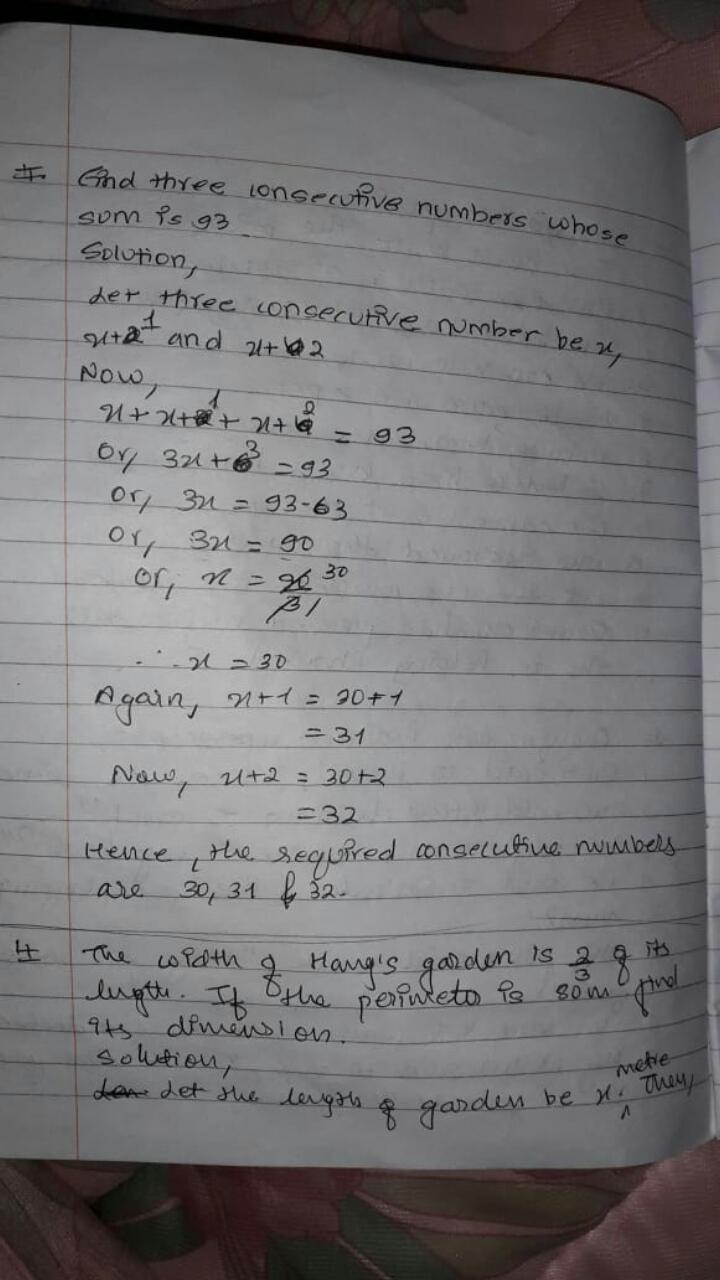 Find three consecutive numbers whose
sum is 93
Solution,
Let three consecutive number be x,
x+1 and x+2
Now,
x + x+1 + x+2 = 93
Or, 3x+3 = 93
or, 3x = 93-3
or, 3x = 90
or, x = 90 30
/3 1
∴ x = 30
Again, x+1 = 30+1
= 31
Now, x+2 = 30+2
= 32
Hence, the required consecutive numbers
are 30, 31 & 32.
4 The width of Hang's garden is 2/3 of its
length. If the perimeto is 80m find
its dimension.
Solution,
Let the length of garden be x metre. Then,